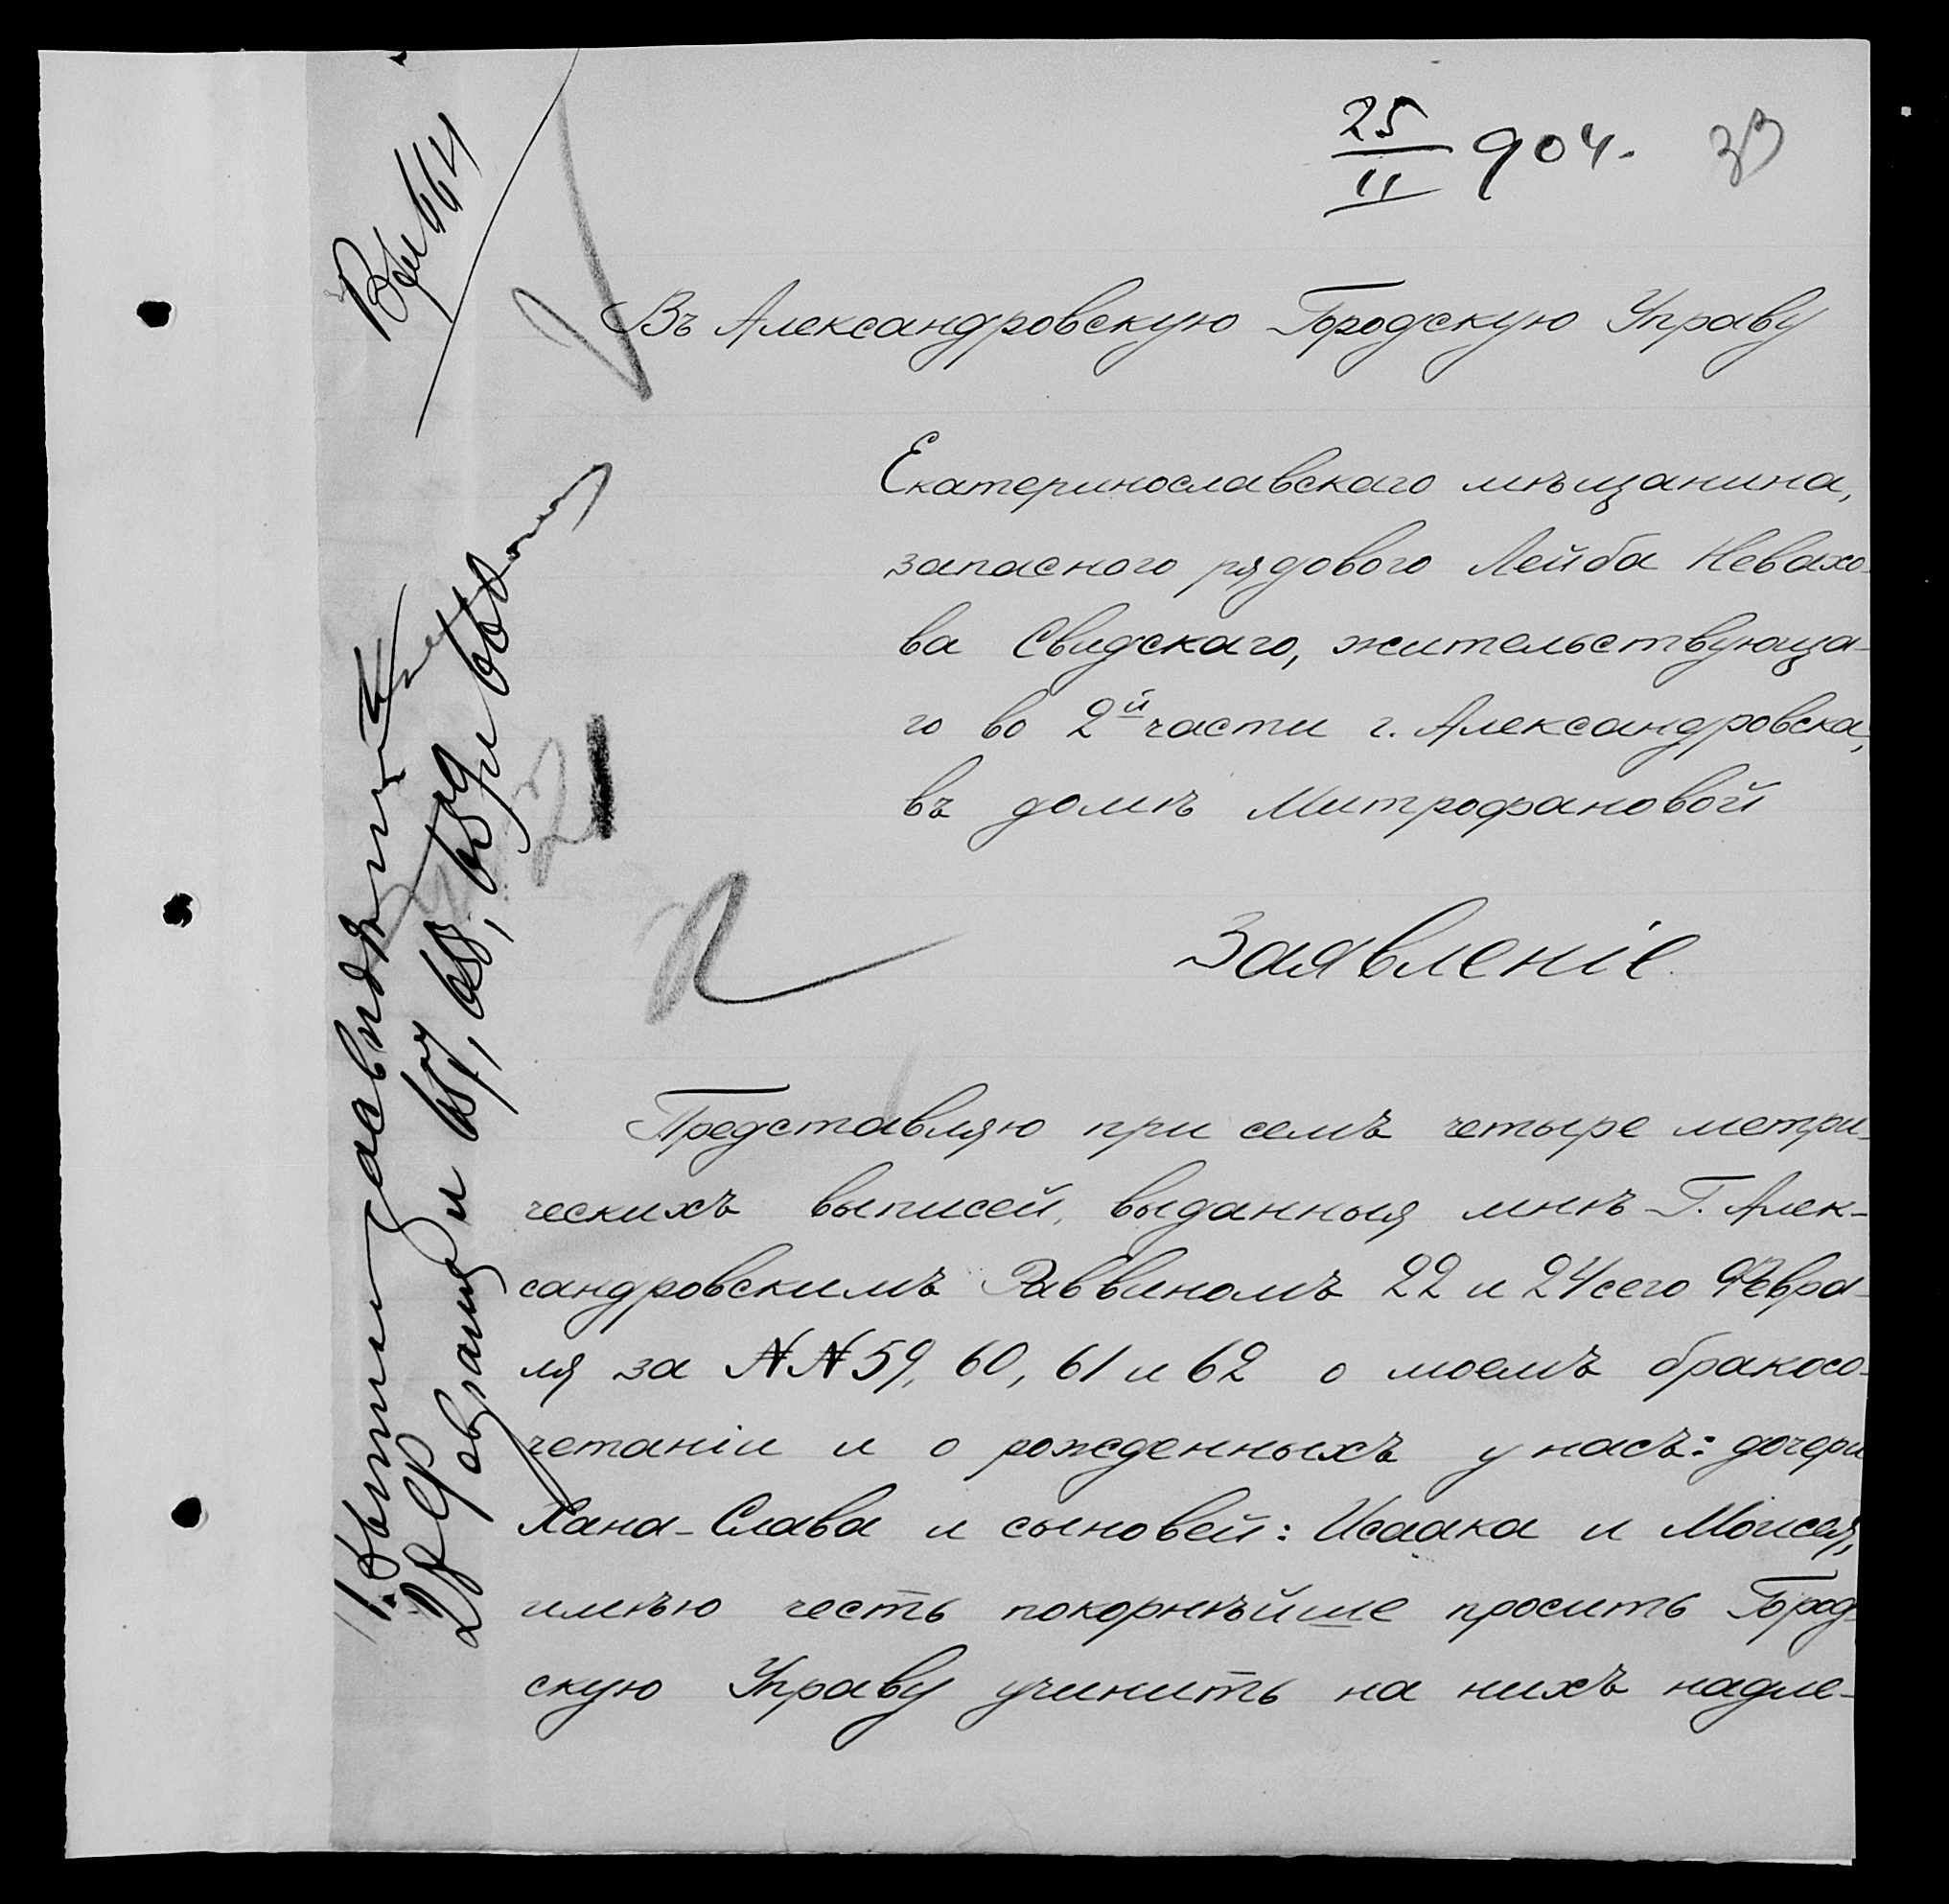 25/II 904.
33
Въ Александровскую Городскую Управу
Екатеринославскаго мѣщанина,
запасного рядового Лейба Невахо-
ва Свидскаго, жительствующа-
го во 2й части г. Александровска,
въ домѣ Митрофановой
Заявленіе.
Представляю при семъ четыре метри-
ческихъ выписей, выданныя мнѣ Г. Алек-
сандровскимъ Раввиномъ 22 и 24 сего Февра-
ля за NN 59, 60, 61 и 62 о моемъ бракосо-
четаніи и о рожденныхъ у насъ: дочери
Хана-Слава и сыновей: Исаака и Моисея,
имѣю честь покорнѣйше просить Город-
скую Управу учинить на нихъ надле-
21
664
28 Февраля
657, 658, 659 и 660